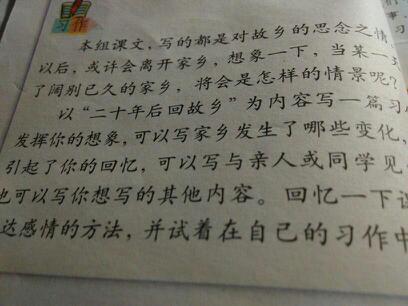 习作
本组课文，写的都是对故乡的思念之情
以后，或许会离开家乡，想象一下，当某一
了阔别已久的家乡，将会是怎样的情景呢？
以“二十年后回故乡”为内容写一篇习
发挥你的想象，可以写家乡发生了哪些变化，
引起了你的回忆，可以写与亲人或同学见
也可以写你想写的其他内容。回忆一下
达感情的方法，并试着在自己的习作中